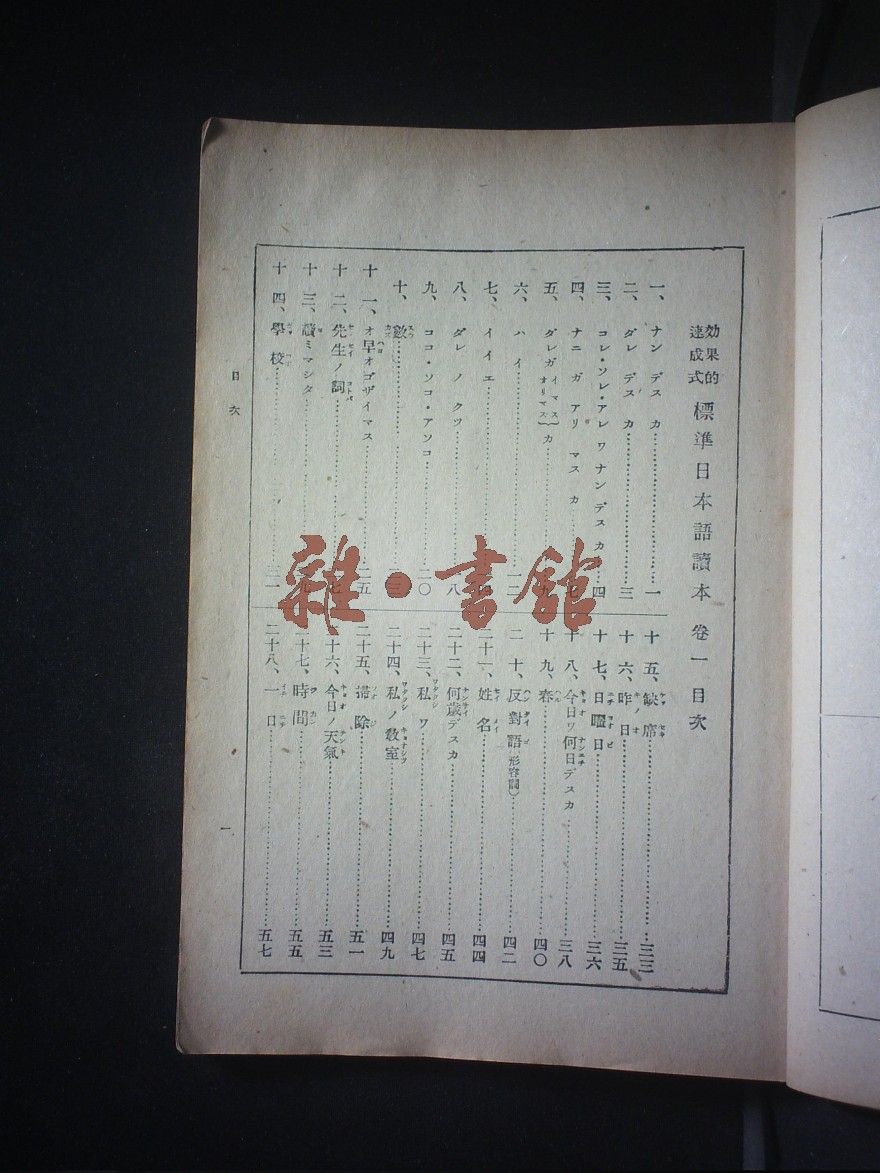 効果的
速成式
標準日本語讀本 卷一 目次
一、ナンデスカ……一
二、ダレデスカ……三
三、コレ・ソレ・アレワナンデスカ……四
四、ナニガアリマスカ
五、ダレガイマスオリマス}カ
六、ハイ……一二
七、イイエ
八、ダレノクツ……八
九、ココ・ソコ・アソコ……二〇
十、數……三
十一、オ早オゴザイマス……二五
十二、先生ノ詞……七
十三、讀ミマシタ
十四、學校
十五、缺席……三三
十六、昨日……三五
十七、日曜日……三六
十八、今日ワ何日デスカ……三八
十九、春……四〇
二十、反對語(形容詞)……四二
二十一、姓名……四四
二十二、何歲デスカ……四五
二十三、私ワ……四七
二十四、私ノ教室……四九
二十五、掃除……五一
二十六、今日ノ天氣……五三
二十七、時間……五五
二十八、一日……五七
目次
一
雜·書舘